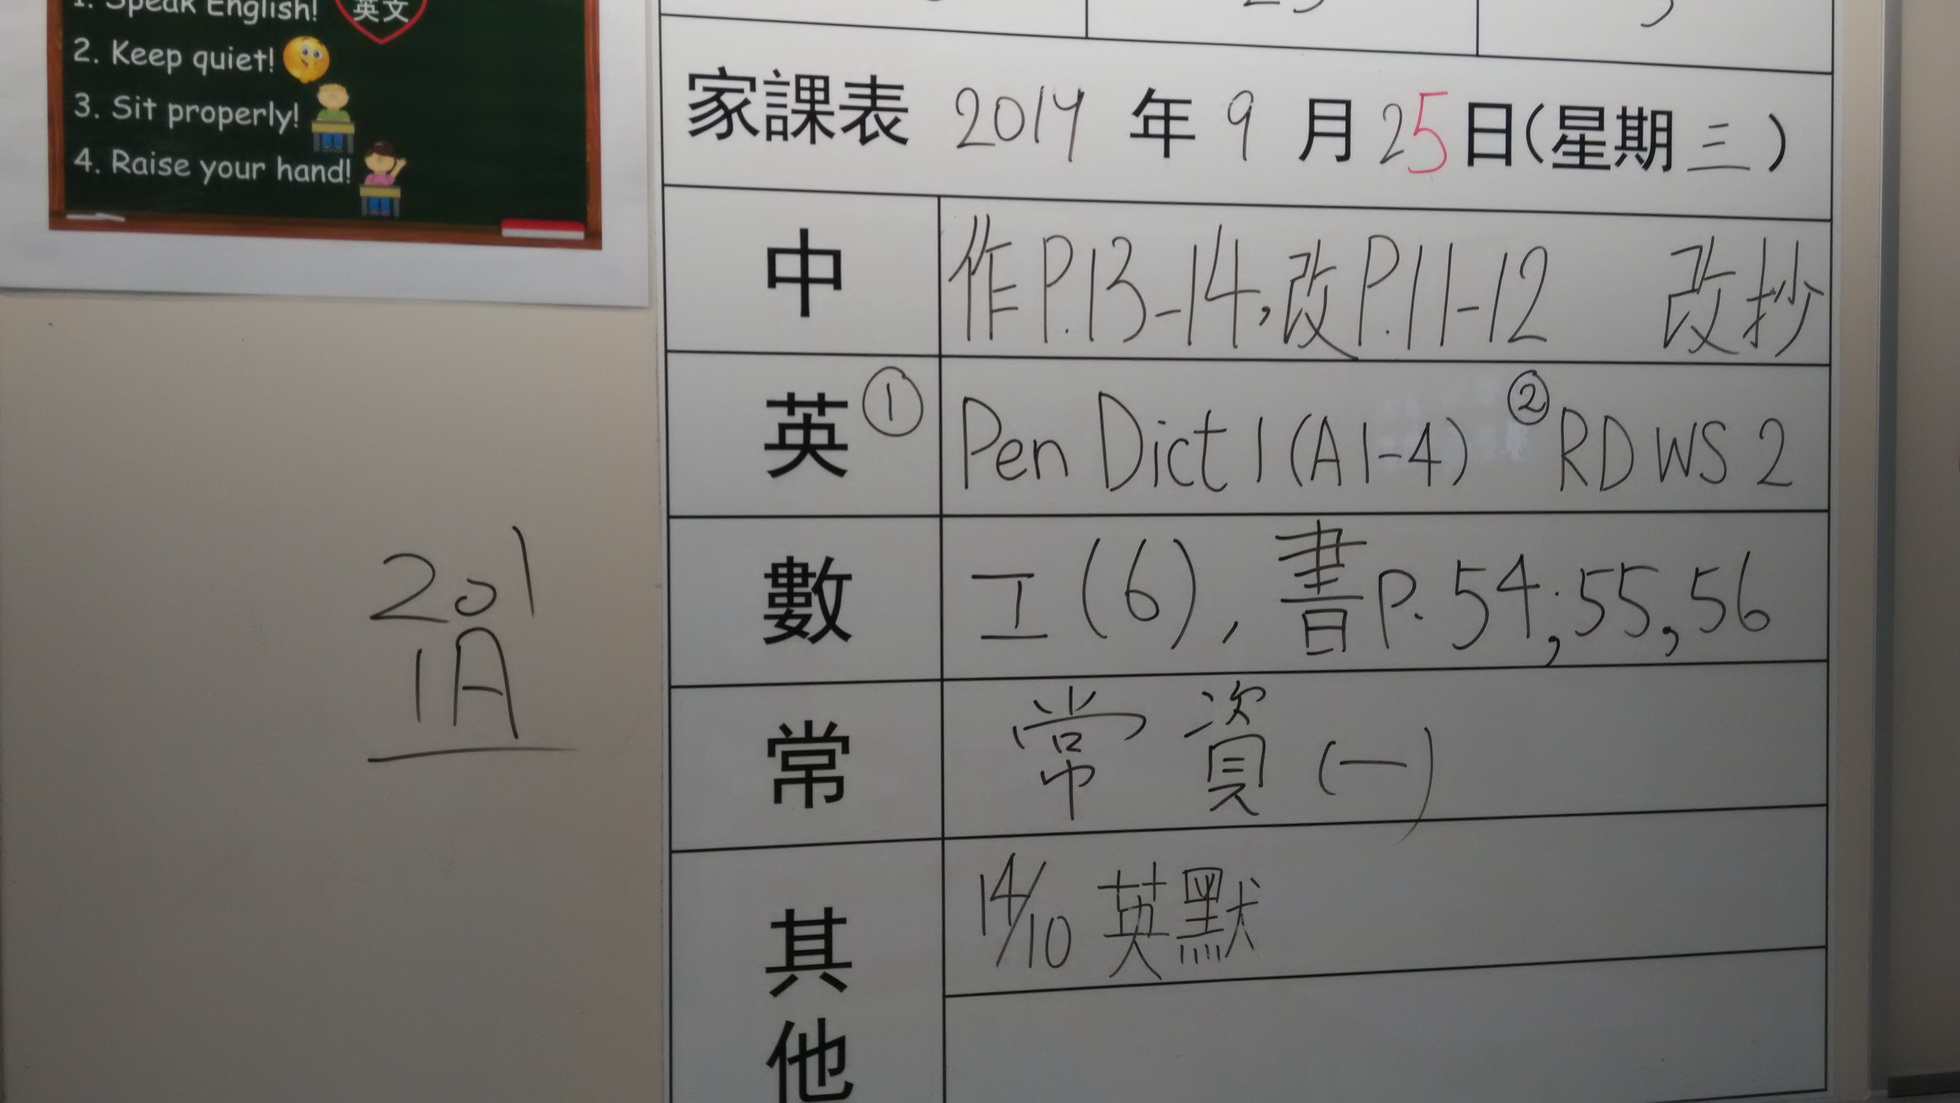 1. Speak English!
英文
2. Keep quiet!
3. Sit properly!
4. Raise your hand!
家課表 2019 年 9 月 25 日(星期三)
中 作P.13-14,改P.11-12 改抄
英 ① Pen Dict 1 (A1-4) ② RD WS 2
數 工(6), 書P.54;55,56
常 常資(一)
其他 14/10 英默
201
1A